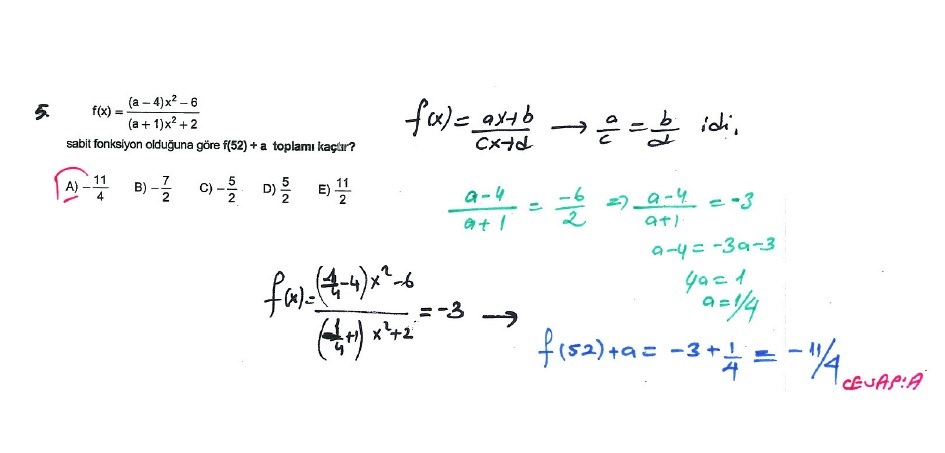 5. f(x) = ((a – 4)x² – 6) / ((a + 1)x² + 2)
sabit fonksiyon olduğuna göre f(52) + a toplamı kaçtır?
A) – 11/4 B) – 7/2 C) – 5/2 D) 5/2 E) 11/2
f(x) = (ax+b) / (cx+d) → a/c = b/d idi.
(a-4)/(a+1) = -6/2 ⇒ (a-4)/(a+1) = -3
a-4 = -3a-3
4a = 1
a = 1/4
f(x) = ((1/4 - 4)x² - 6) / ((1/4 + 1)x² + 2) = -3 →
f(52) + a = -3 + 1/4 = -11/4
CEVAP:A